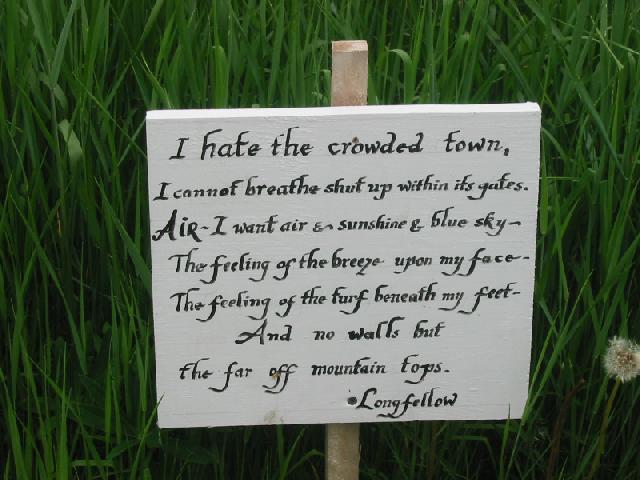 I hate the crowded town,
I cannot breathe shut up within its gates.
Air-I want air & sunshine & blue sky-
The feeling of the breeze upon my face-
The feeling of the turf beneath my feet-
And no walls but
the far off mountain tops.
•Longfellow